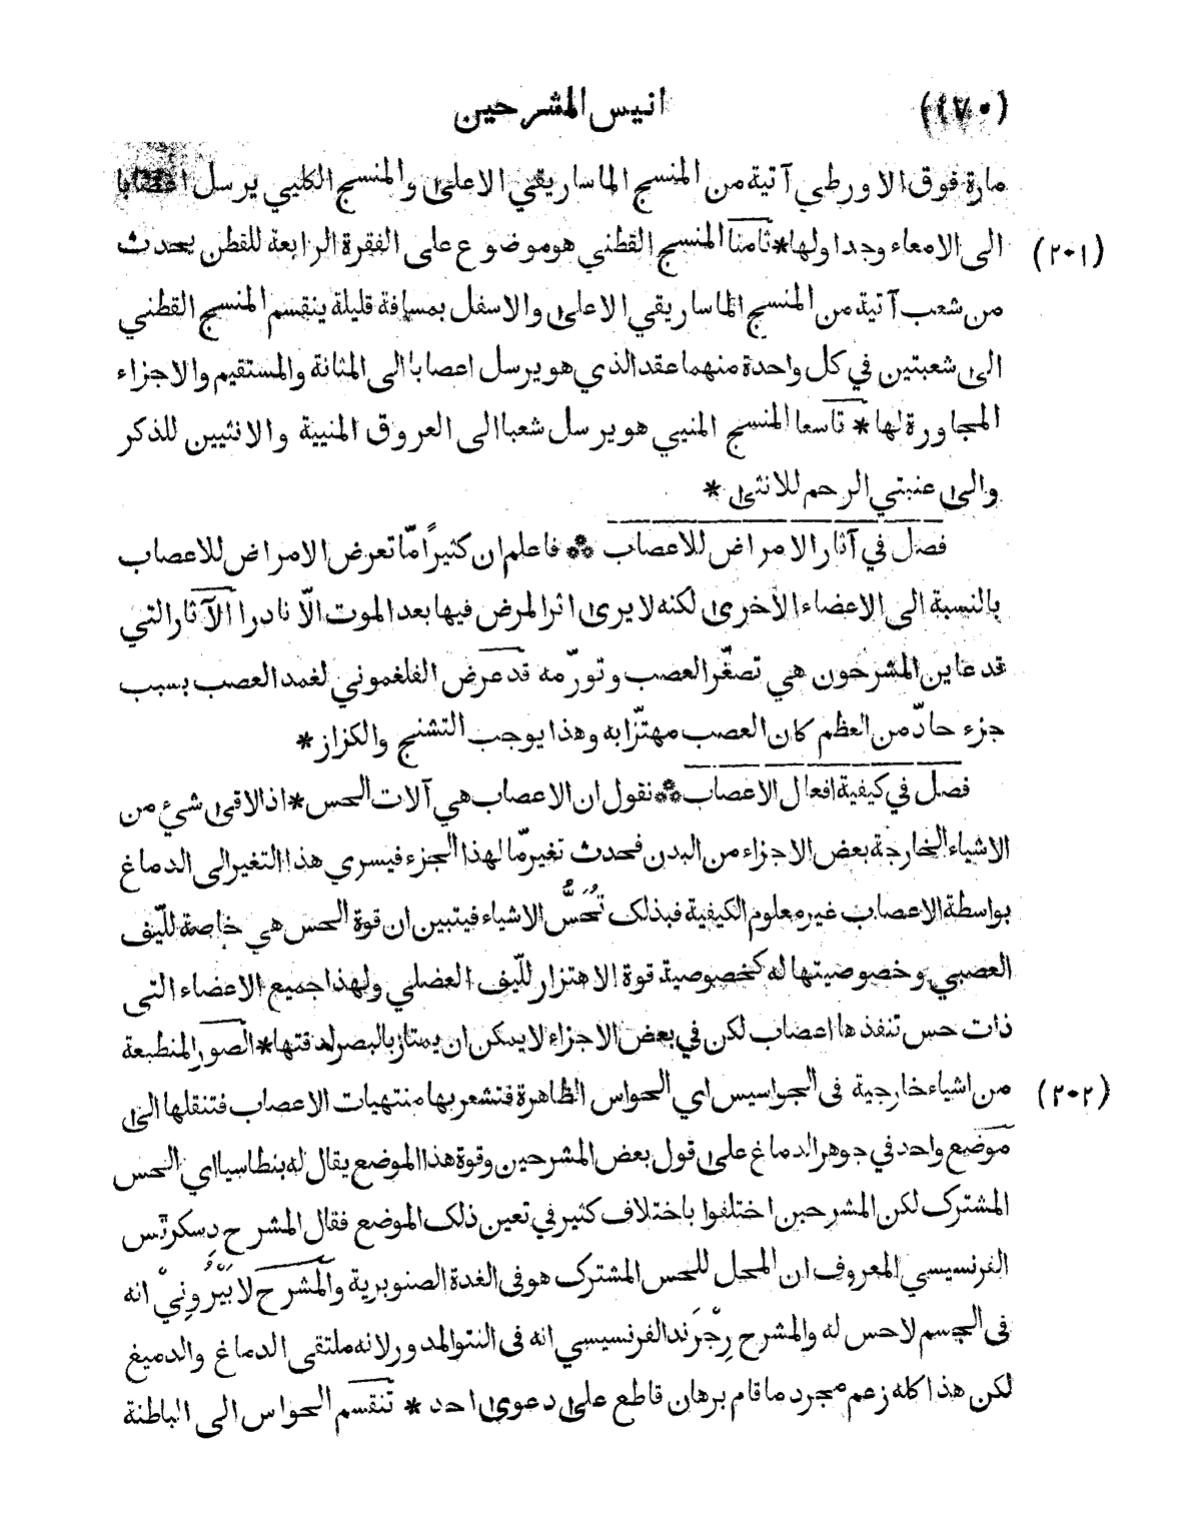 (٤٧٠) انيس المشرحين
مارة فوق الاورطي آتية من المنسج الماساريقي الاعلى والمنسج الكليي يرسل اعصابا
(٢٠١) الى الامعاء وجداولها * ثامنا المنسج القطني هو موضوع على الفقرة الرابعة للقطن يحدث
من شعب آتية من المنسج الماساريقي الاعلى والاسفل بمسافة قليلة ينقسم المنسج القطني
الى شعبتين في كل واحدة منهما عقد الذي هو يرسل اعصابا الى المثانة والمستقيم والاجزاء
المجاورة لها * تاسعا المنسج المنيي هو يرسل شعبا الى العروق المنيية والانثيين للذكر
والى عنبتي الرحم للانثى *
فصل في آثار الامراض للاعصاب ⁂ فاعلم ان كثيرًا مّا تعرض الامراض للاعصاب
بالنسبة الى الاعضاء الأخرى لكنه لا يرى اثر المرض فيها بعد الموت الّا نادرا الآثار التي
قد عاين المشرحون هي تصغّر العصب وتورّمه قد عرض الفلغموني لغمد العصب بسبب
جزء حادّ من العظم كان العصب مهتزّا به وهذا يوجب التشنج والكزاز *
فصل في كيفية افعال الاعصاب ⁂ نقول ان الاعصاب هي آلات الحس * اذ الاقى شئ من
الاشياء الخارجة بعض الاجزاء من البدن فحدث تغير مّا لهذا الجزء فيسري هذا التغير الى الدماغ
بواسطة الاعصاب غير معلوم الكيفية فبذلك تُحَسُّ الاشياء فيتبين ان قوة الحس هي خاصة للّيف
العصبي وخصوصيتها له كخصوصية قوة الاهتزار للّيف العضلي ولهذا جميع الاعضاء التى
ذات حس تنفذها اعصاب لكن في بعض الاجزاء لا يمكن ان يمتاز بالبصر لدقتها * الصور المنطبعة
(٢٠٢) من اشياء خارجية فى الجواسيس اي الحواس الظاهرة فتشعر بها منتهيات الاعصاب فتنقلها الى
موضع واحد في جوهر الدماغ على قول بعض المشرحين وقوة هذا الموضع يقال له بنطاسيا اي الحس
المشترك لكن المشرحين اختلفوا باختلاف كثير في تعين ذلك الموضع فقال المشرح دِسكرتَس
الفرنسيسي المعروف ان المحل للحس المشترك هو فى الغدة الصنوبرية والمشرح لابَيْرُونِيْ انه
فى الجسم لاحس له والمشرح رِجْرَند الفرنسيسي انه فى النتو المدور لانه ملتقى الدماغ والدميغ
لكن هذا كله زعم مجرد ما قام برهان قاطع على دعوى احد * تنقسم الحواس الى الباطنة